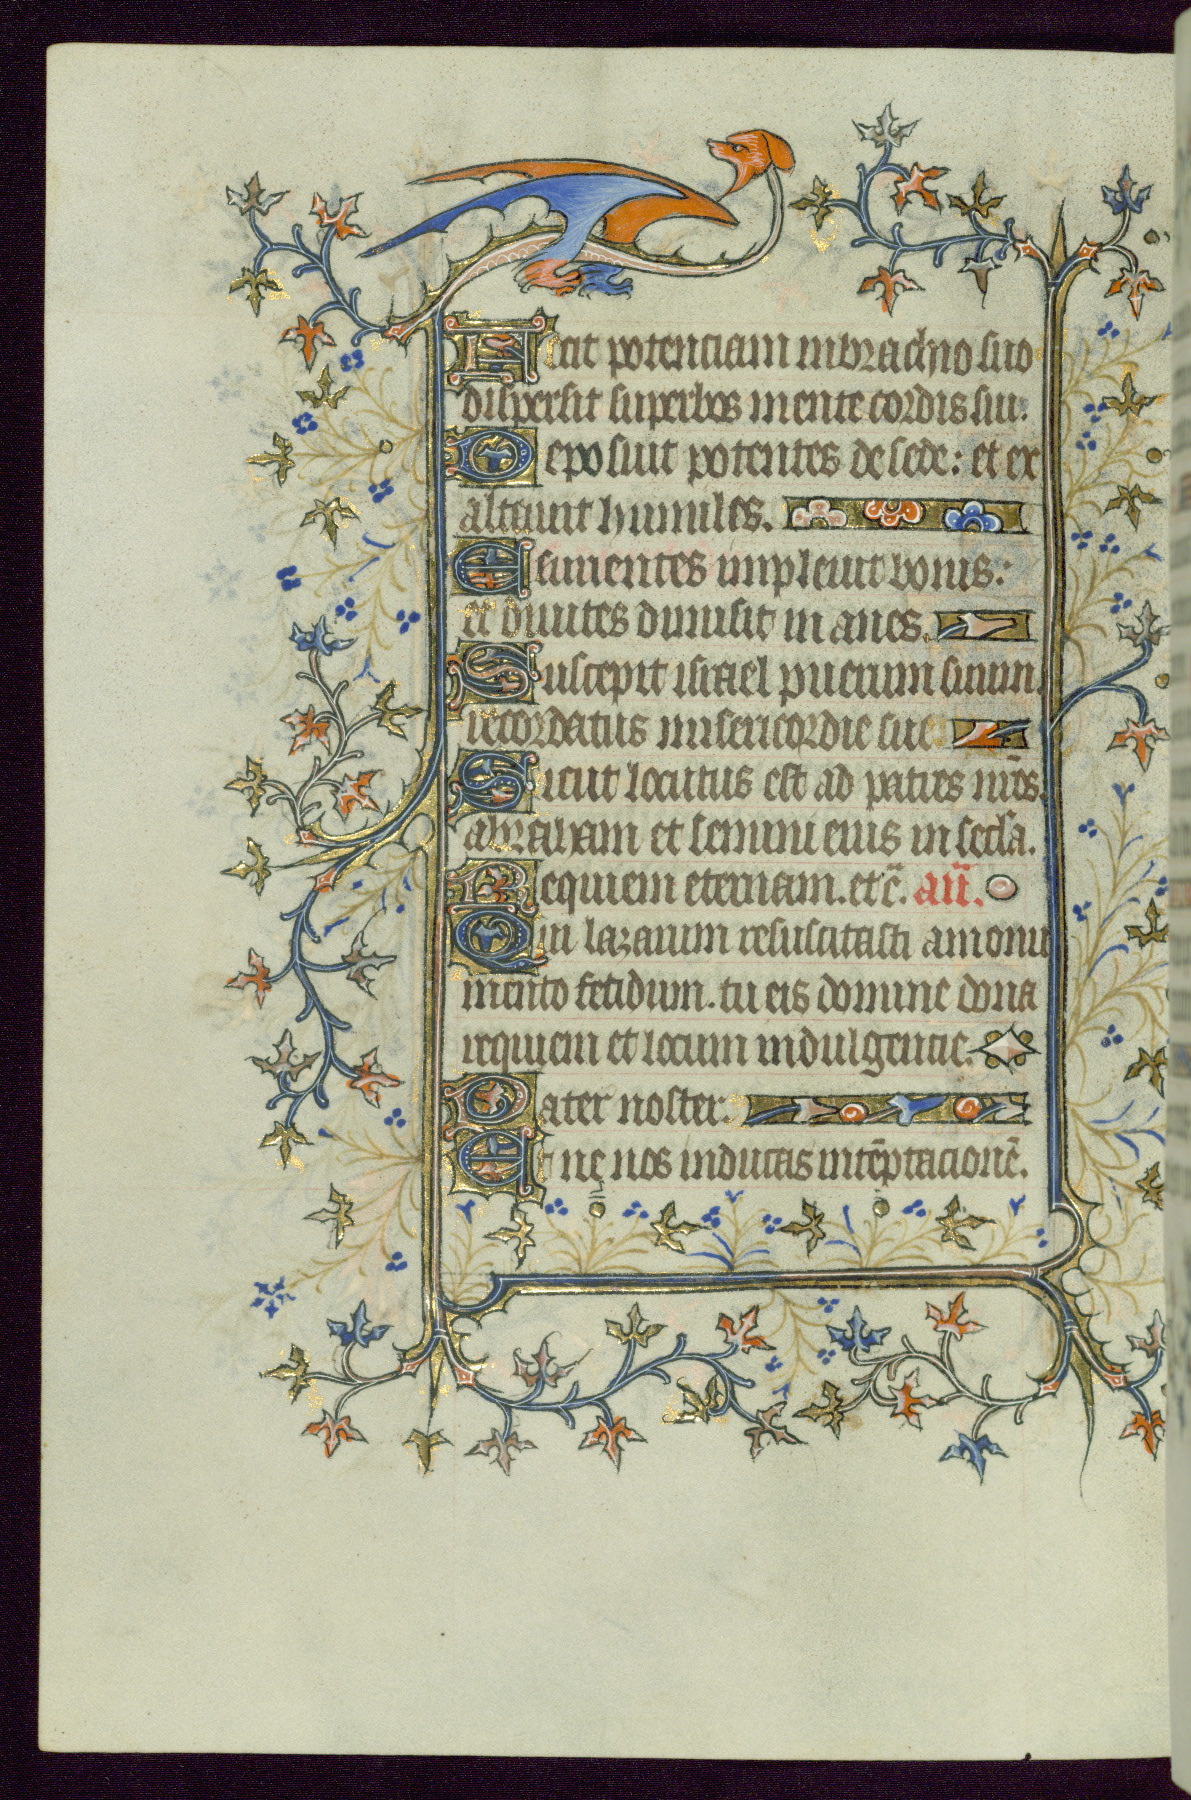 Fecit potenciam in brachio suo
dispersit superbos mente cordis sui.
Deposuit potentes de sede: et ex
altauit humiles.
Esurientes impleuit bonis:
et diuites dimisit in anes.
Suscepit israel puerum suum
recordatus misericordie sue
Sicut locutus est ad patres nr̄os.
abraham et semini eius in secla.
Requiem eternam. etc̄. an̄.
Qui lazarum resuscitasti a monu
mento fetidum. tu eis domine dona
requiem et locum indulgencie.
Pater noster.
Et ne nos inducas in tēptacionē.